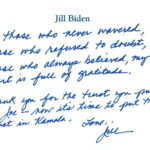 Jill Biden
those who never wavered,
se who refused to doubt,
se who always believed, my
rt is full of gratitude.
nk you for the trust you put
Joe – now it's time to put th
st in Kamala.
Love,
Jill